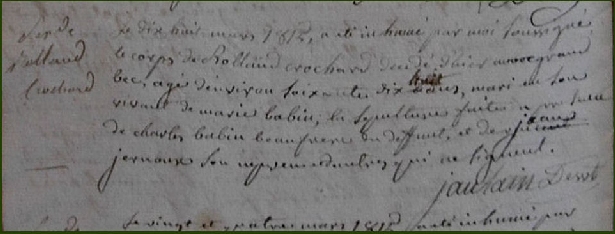 Sep.re de
Rolland
Crochard
Le dix huit mars 1812, a été inhumé par moi soussigné
le corps de Rolland crochard décédé d'hier au
bec, agé d'environ soixante dix huit ans, mari en son
vivant de marie babin, la sépulture faite en présence
de charles babin beaufrere du deffunt, et de jean
son qui ne signent.
jaulain Dess.t
Le vingt et quatre mars 1812 a été inhumé par